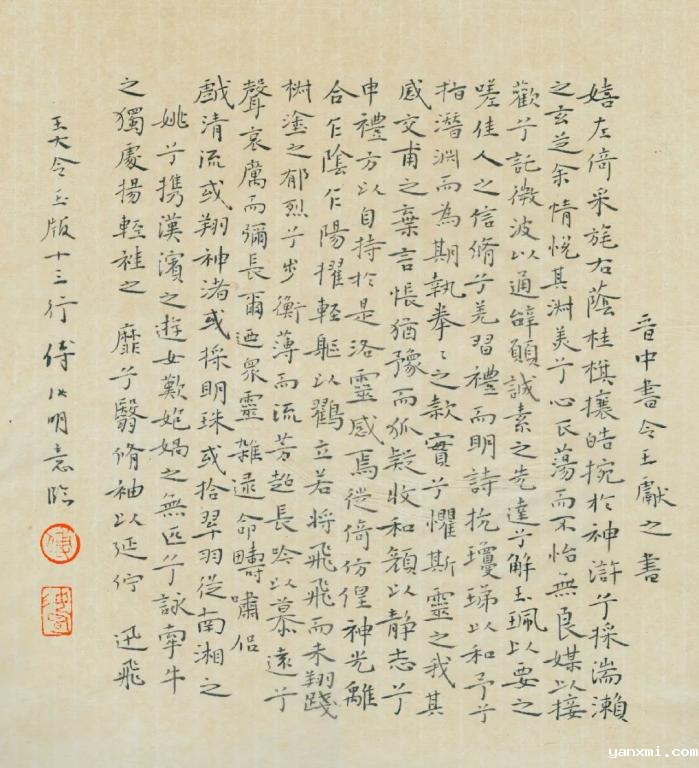 晉中書令王獻之書
嬉左倚采旄右蔭桂棋攘皓捥於神滸兮採湍瀨
之玄芝余情悅其淑美兮心辰蕩而不怡無良媒以接
歡兮託微波以通辭願誠素之先達兮解玉珮以要之
嗟佳人之信脩兮羌習禮而明詩抗瓊珶以和予兮
指潛淵而為期執拳〻之款實兮懼斯靈之我其
感交甫之棄言悵猶豫而狐疑收和顏以静志兮
申禮方以自持於是洛靈感焉徙倚仿偟神光離
合乍陰乍陽擢輕軀以鸖立若將飛飛而未翔踐
椒塗之郁烈兮步衡薄而流芳超長吟以慕遠兮
聲哀厲而彌長爾迺衆靈雜遝命疇嘯侣
戲清流或翔神渚或採明珠或拾翠羽從南湘之
姚兮携漢濱之遊女歎匏媧之無匹兮詠牽牛
之獨處揚輕袿之 靡兮翳脩袖以延佇 迅飛
王大令玉版十三行 傅 明意臨
傅
www.yanxmi.com